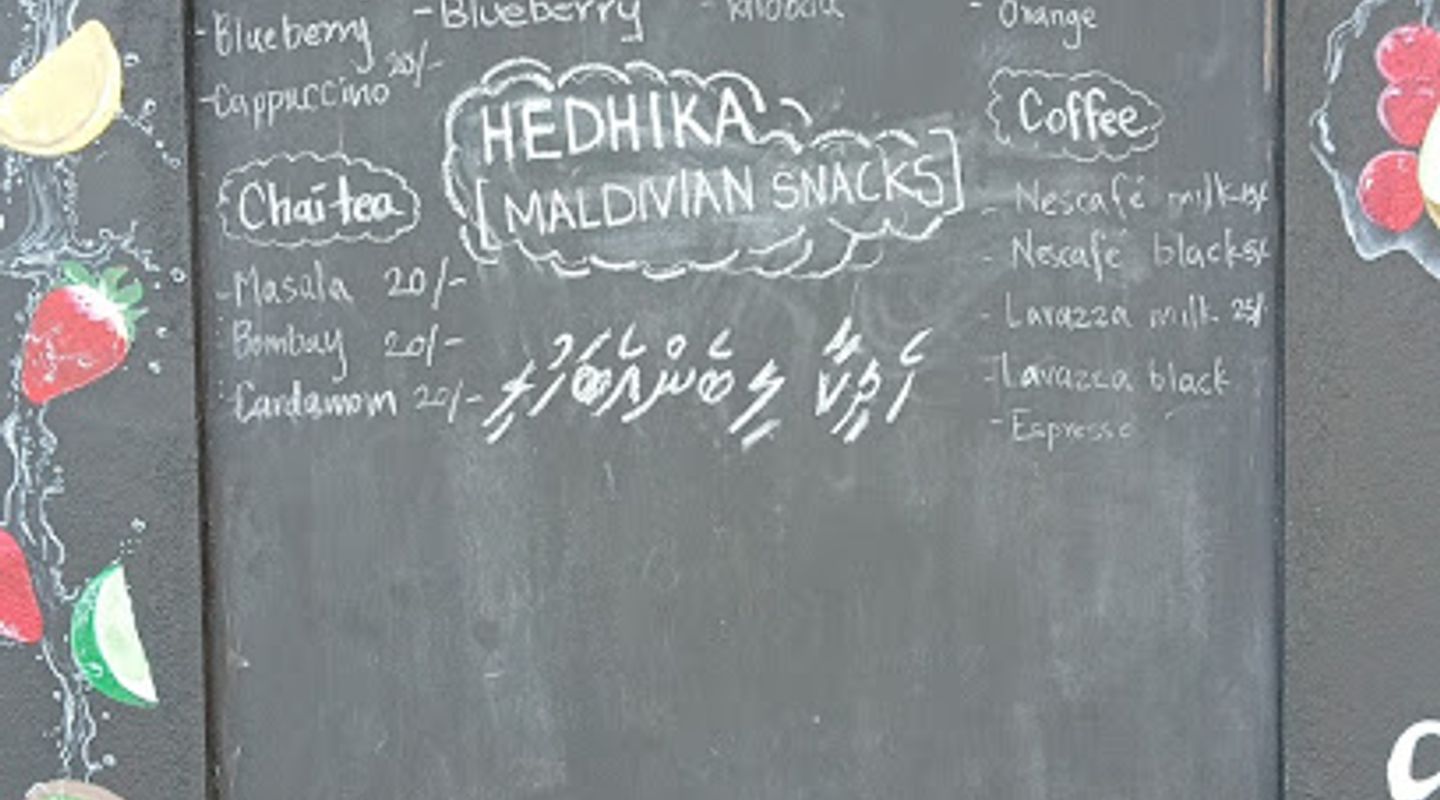 -Blueberry
-Cappuccino 20/-
-Blueberry
- Orange
HEDHIKA
[MALDIVIAN SNACKS]
Chai tea
-Masala 20/-
Bombay 20/-
Cardamom 20/-
Coffee
- Nescafé milk
- Nescafé black
- Lavazza milk 25/-
- Lavazza black
- Espresso